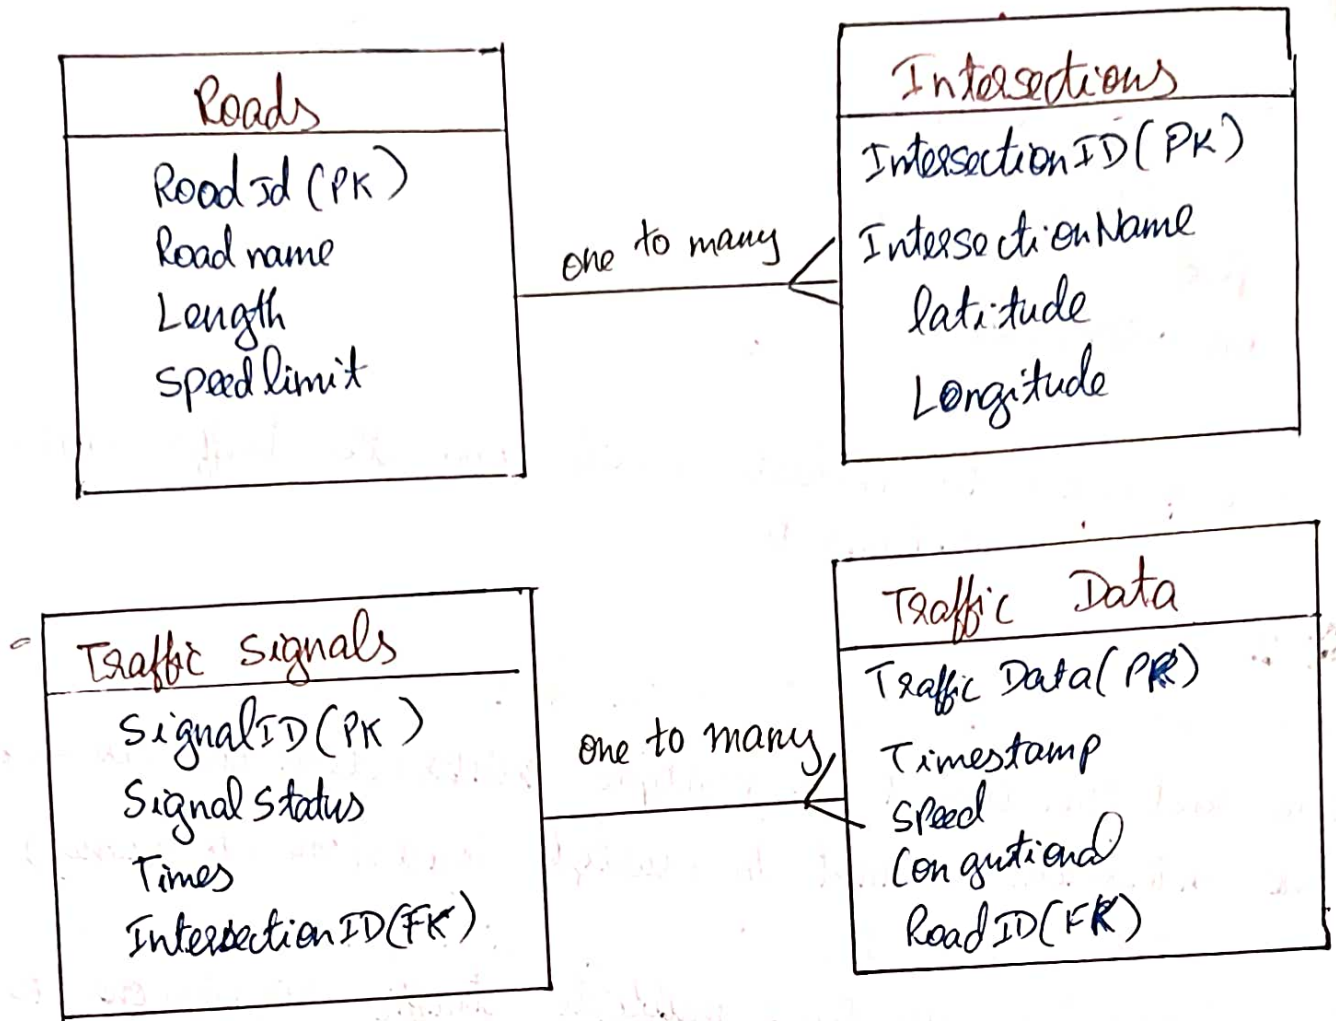 Roads
Road Id (PK)
Road name
Length
Speed limit
one to many
Intersections
IntersectionID (PK)
IntersectionName
latitude
Longitude
Traffic Signals
SignalID (PK)
Signal Status
Times
IntersectionID (FK)
one to many
Traffic Data
Traffic Data (PK)
Timestamp
Speed
Congutional
Road ID (FK)